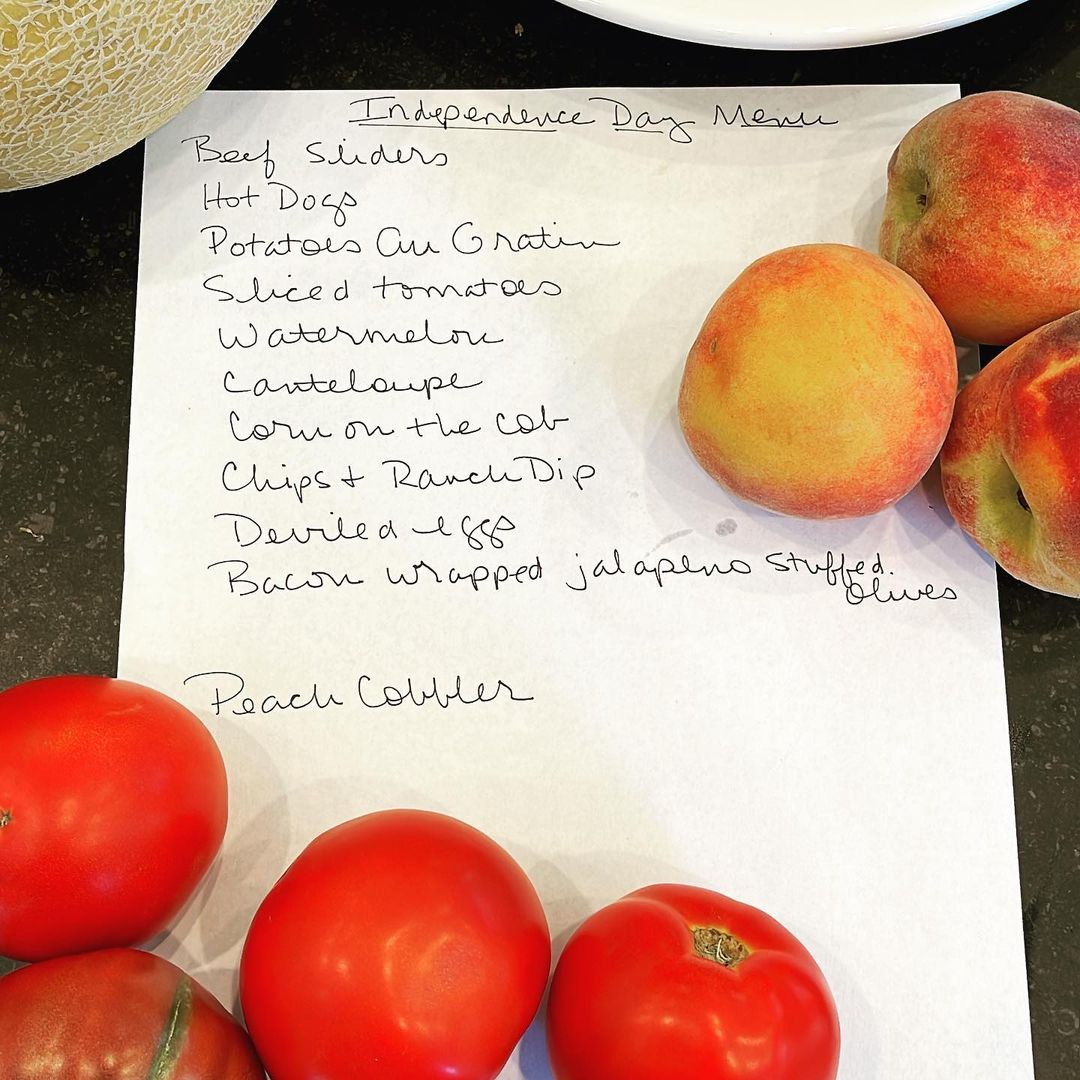 Independence Day Menu
Beef Sliders
Hot Dogs
Potatoes Au Gratin
Sliced tomatoes
Watermelon
Canteloupe
Corn on the cob
Chips + Ranch Dip
Deviled eggs
Bacon wrapped jalapeno stuffed.
Olives
Peach Cobbler